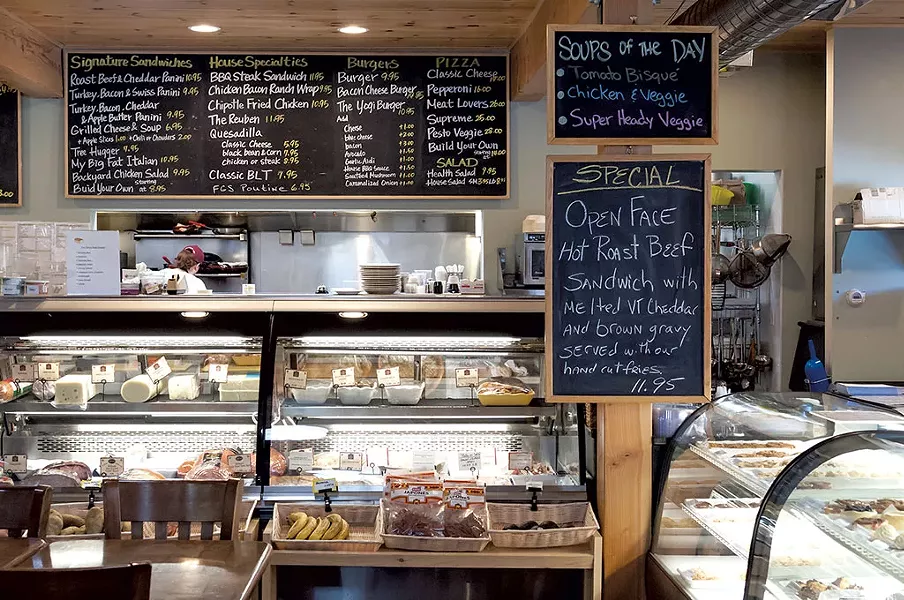 Signature Sandwiches
Roast Beef & Cheddar Panini 10.95
Turkey, Bacon & Swiss Panini 9.95
Turkey, Bacon, Cheddar
& Apple Butter Panini 9.95
Grilled Cheese & Soup 6.95
+ Apple Slices 1.00 + Chili or Chowder 2.00
Tree Hugger 9.95
My Big Fat Italian 10.95
Backyard Chicken Salad 9.95
Build Your Own starting at 8.95
House Specialties
BBQ Steak Sandwich 11.95
Chicken Bacon Ranch Wrap 9.95
Chipotle Fried Chicken 10.95
The Reuben 11.95
Quesadilla
Classic Cheese 5.95
black bean & corn 7.95
chicken or steak 8.95
Classic BLT 7.95
FCS Poutine 6.95
Burgers
Burger 9.95
Bacon Cheese Burger
The Yogi Burger
10.95
Add
Cheese +1.00
blue cheese
bacon
Avocado
Garlic Aioli
House BBQ Sauce
Sautéed Mushroom
Caramelized Onion +1.00
PIZZA
Classic Cheese
Pepperoni
Meat Lovers 26.00
Supreme 25.00
Pesto Veggie 25.00
Build Your Own
SALAD
Health Salad 9.95
House Salad SM 3.95
Soups of the Day
• Tomato Bisque
• Chicken & Veggie
• Super Heady Veggie
SPECIAL
Open Face
Hot Roast Beef
Sandwich with
melted VT Cheddar
and brown gravy
served with our
hand cut fries
11.95